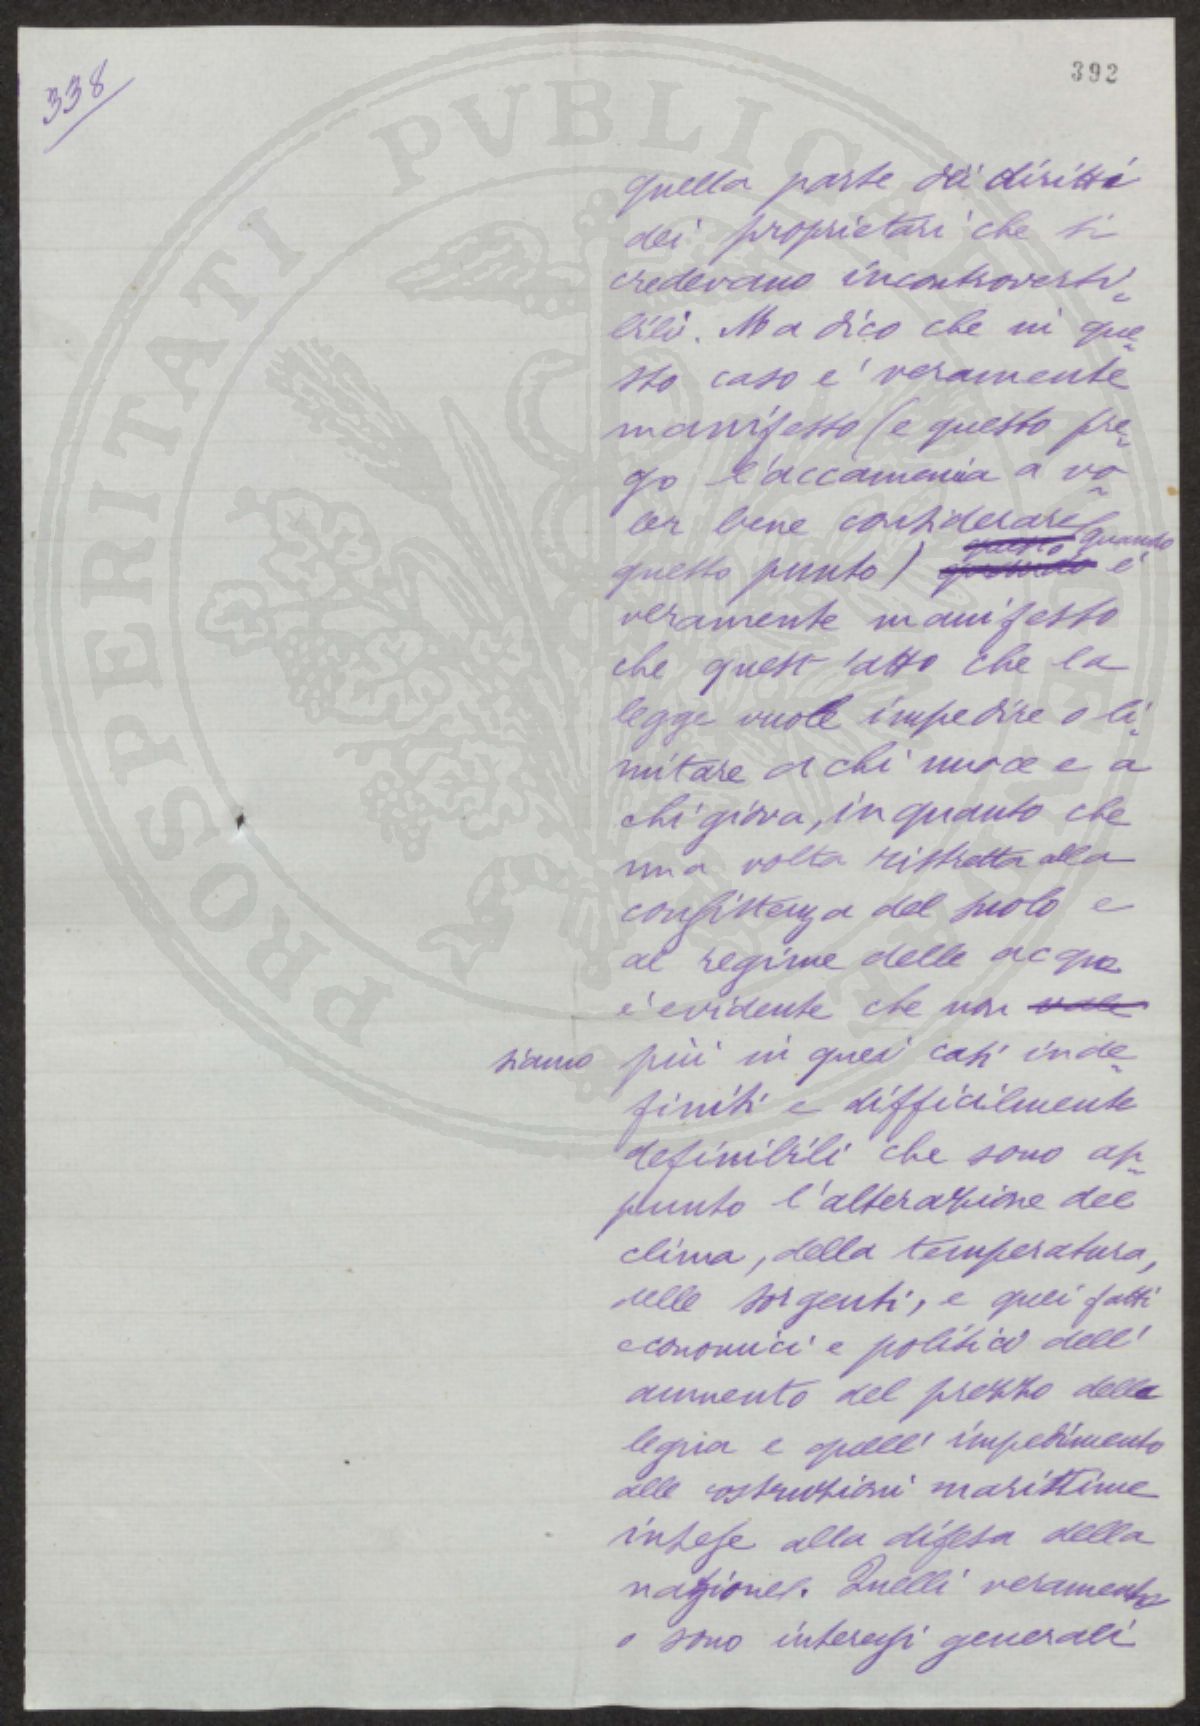 338
392
quella parte dei diritti
dei proprietari che si
credevano incontroverti=
bili. Ma dico che in que=
sto caso e' veramente
manifesto (e questo pre=
go l'accamenia a vo=
ler bene considerare
questo quando
questo punto) quando e'
veramente manifesto
che quest'atto che la
legge vuole impedire o li=
mitare a chi nuoce e a
chi giova, in quanto che
una volta ristretta alla
consistenza del suolo e
al regime delle acque
e' evidente che non vale
siamo più in quei casi inde=
finiti e difficilmente
definibili che sono ap=
punto l'alterazione del
clima, della temperatura,
delle sorgenti, e quei fatti
economici e politici dell'
aumento del prezzo della
legna e quell' impedimento
alle costruzioni marittime
intese alla difesa della
nazione. Quelli veramente
o sono interessi generali
PROSPERITATI PVBLICAE